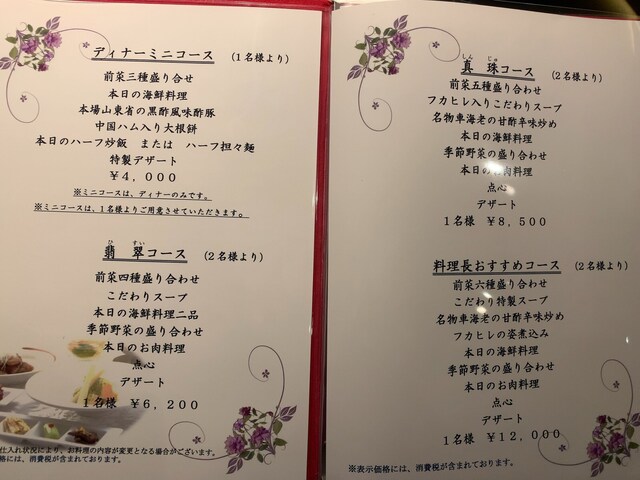 ディナーミニコース (1名様より)
前菜三種盛り合せ
本日の海鮮料理
本場山東省の黒酢風味酢豚
中国ハム入り大根餅
本日のハーフ炒飯 または ハーフ担々麺
特製デザート
￥4,000
※ミニコースは、ディナーのみです。
※ミニコースは、1名様よりご用意させていただきます。
ひ すい
翡 翠コース (2名様より)
前菜四種盛り合わせ
こだわりスープ
本日の海鮮料理二品
季節野菜の盛り合わせ
本日のお肉料理
点心
デザート
1名様 ￥6,200
仕入れ状況により、お料理の内容が変更となる場合がございます。
価格には、消費税が含まれております。
しん じゅ
真 珠コース (2名様より)
前菜五種盛り合わせ
フカヒレ入りこだわりスープ
名物車海老の甘酢辛味炒め
本日の海鮮料理
季節野菜の盛り合わせ
本日のお肉料理
点心
デザート
1名様 ￥8,500
料理長おすすめコース (2名様より)
前菜六種盛り合わせ
こだわり特製スープ
名物車海老の甘酢辛味炒め
フカヒレの姿煮込み
本日の海鮮料理
季節野菜の盛り合わせ
本日のお肉料理
点心
デザート
1名様 ￥12,000
※表示価格には、消費税が含まれております。